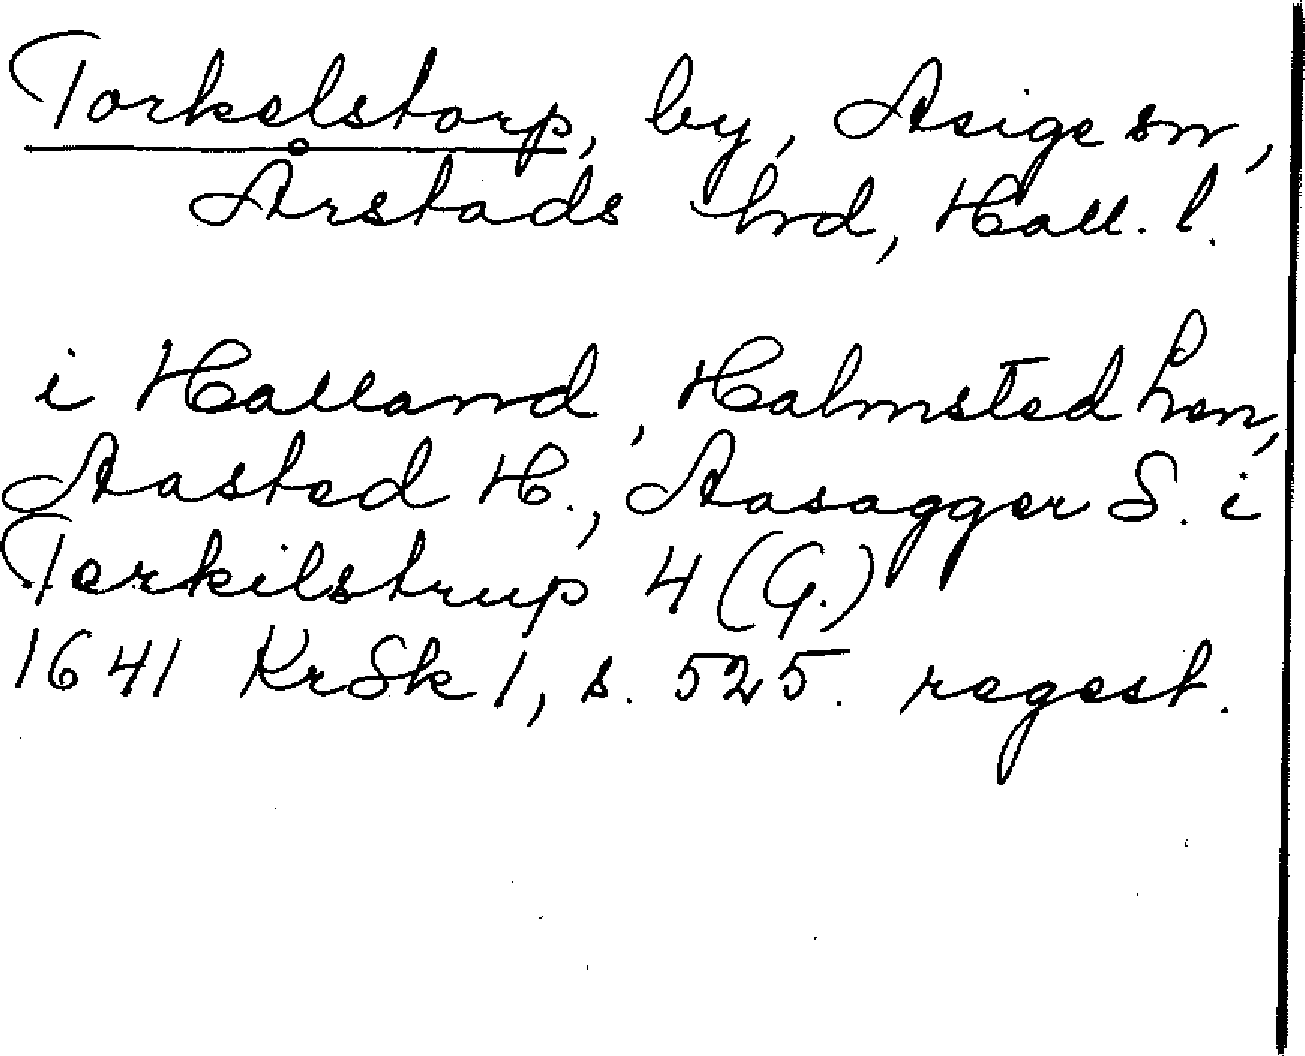 Torkelstorp, by, Asige sn,
Årstads hrd, Hall. l.
i Halland, Halmsted Len,
Aasted H., Aasagger S. i
Terkilstrup 4 (G.)
1641 KrSk 1, s. 525. regest.